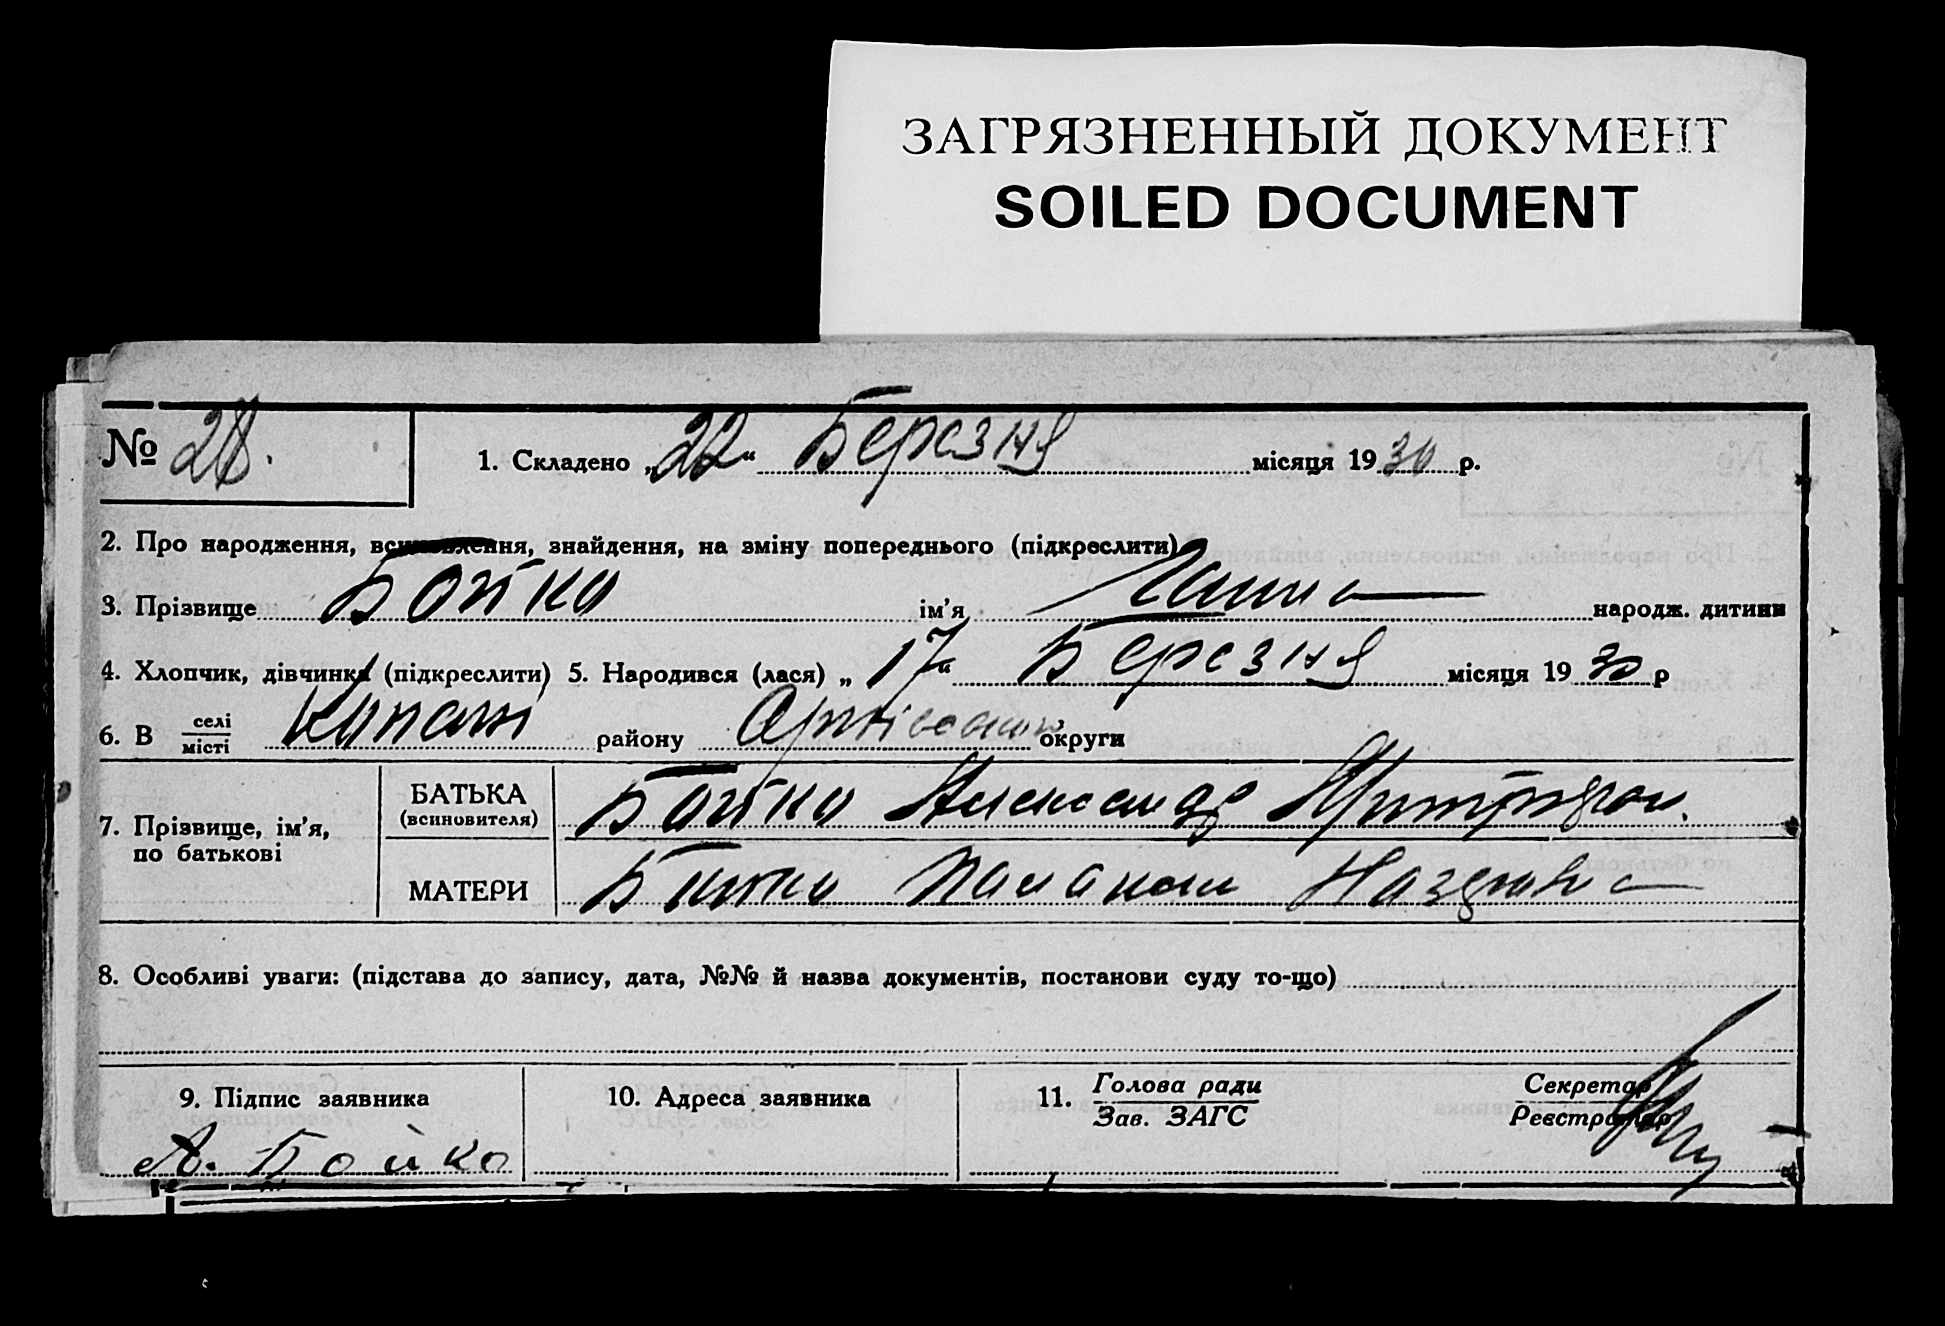 ЗАГРЯЗНЕННЫЙ ДОКУМЕНТ
SOILED DOCUMENT
№ 28.
1. Складено „22“ Березня місяця 1930 р.
2. Про народження, всиновлення, знайдення, на зміну попереднього (підкреслити)
3. Прізвище Бойко ім'я Ганна народж. дитини
4. Хлопчик, дівчинка (підкреслити) 5. Народився (лася) „17“ Березня місяця 1930 р
6. В селі
місті Капані району округи
7. Прізвище, ім'я, по батькові
БАТЬКА (всиновителя) Бойко Александр
МАТЕРИ Бойко
8. Особливі уваги: (підстава до запису, дата, №№ й назва документів, постанови суду то-що)
9. Підпис заявника
А. Бойко
10. Адреса заявника
11. Голова ради
Зав. ЗАГС
Секретар
Реєстратор